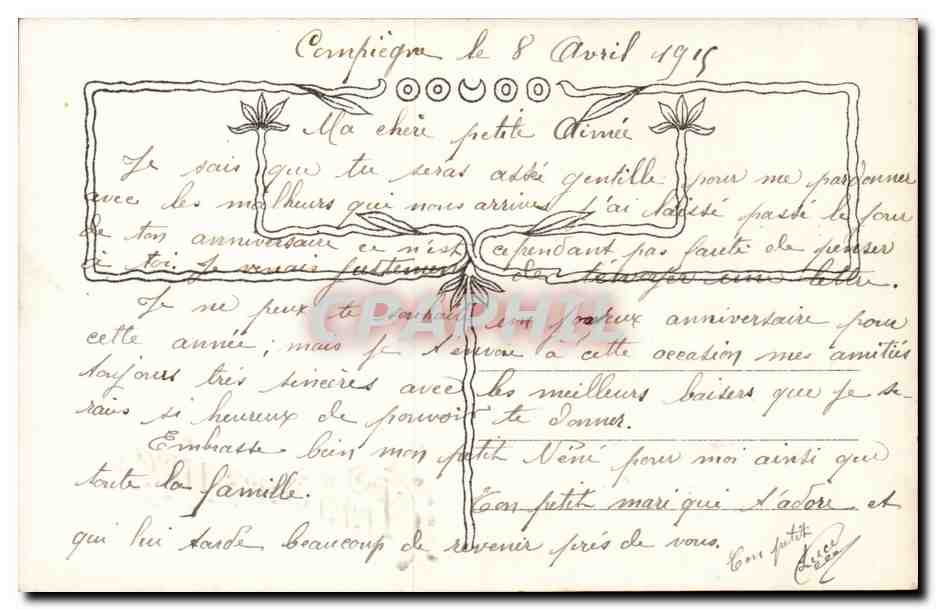 Compiègne le 8 Avril 1915
Ma chère petite Aimée
Je sais que tu seras assé gentille pour me pardonner
avec les malheurs qui nous arrives j'ai laissé passé le jour
de ton anniversaire ce n'est cependant pas fauté de penser
à toi. Je venais justement de t'envoyer une lettre.
Je ne peux te souhaité un joyeux anniversaire pour
cette année; mais je t'envoie à cette occasion mes amitiés
toujours très sincères avec les meilleurs baisers que je se-
rais si heureux de pouvoir te donner.
Embrasse bien mon petit Néné pour moi ainsi que
toute la famille. Ton petit mari qui t'adore et
qui lui tarde beaucoup de revenir près de vous.
Ton petit
CPARHIL